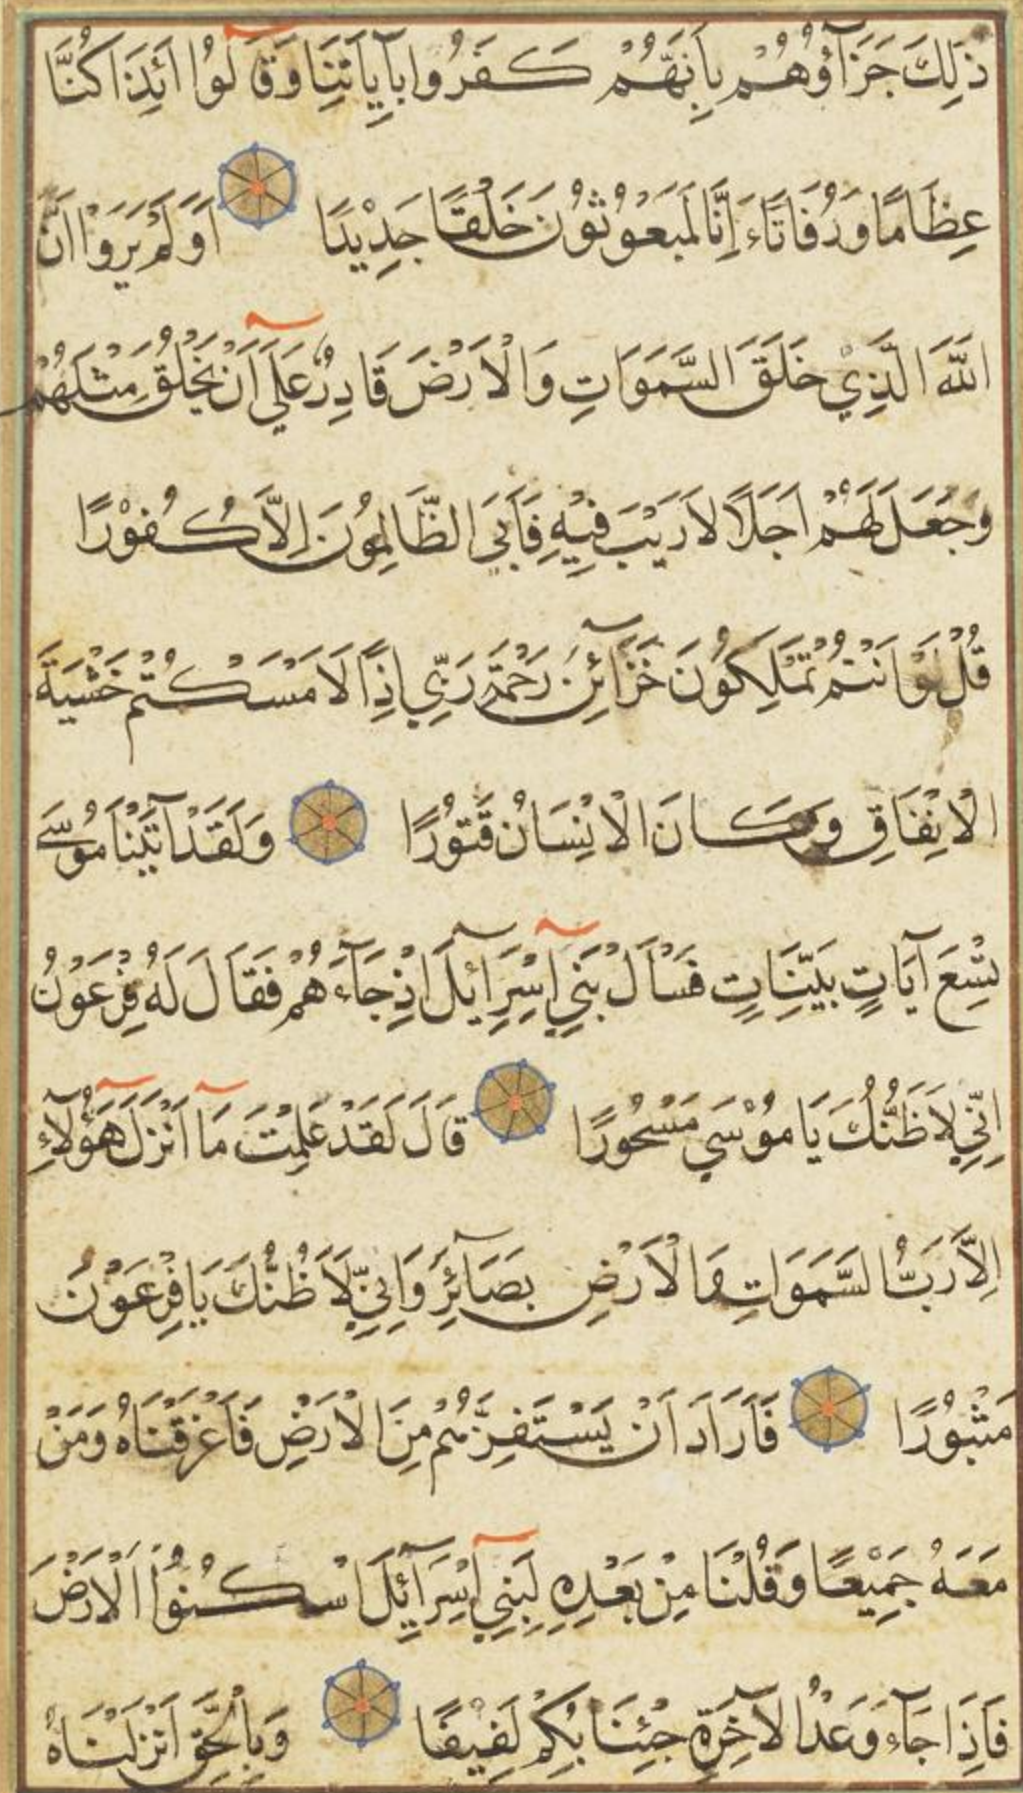 ذَلِكَ جَزَآؤُهُمْ بِاَنَّهُمْ كَفَرُوا بِآيَاتِنَا وَقَالُوا اَئِذَا كُنَّا
عِظَامًا وَرُفَاتًا ءَاِنَّا لَمَبْعُوثُونَ خَلْقًا جَدِيْدًا اَوَلَمْ يَرَوْا اَنَّ
اللّٰهَ الَّذِيْ خَلَقَ السَّمَوَاتِ وَالْاَرْضَ قَادِرٌ عَلَى اَنْ يَخْلُقَ مِثْلَهُمْ
وَجَعَلَ لَهُمْ اَجَلًا لَا رَيْبَ فِيْهِ فَاَبَى الظَّالِمُونَ اِلَّا كُفُوْرًا
قُلْ لَوْ اَنْتُمْ تَمْلِكُونَ خَزَآئِنَ رَحْمَةِ رَبِّي اِذًا لَاَمْسَكْتُمْ خَشْيَةَ
الْاِنْفَاقِ وَكَانَ الْاِنْسَانُ قَتُوْرًا وَلَقَدْ آتَيْنَا مُوسَى
تِسْعَ آيَاتٍ بَيِّنَاتٍ فَسْاَلْ بَنِي اِسْرَآئِيلَ اِذْ جَآءَهُمْ فَقَالَ لَهُ فِرْعَوْنُ
اِنِّي لَاَظُنُّكَ يَا مُوْسَى مَسْحُورًا قَالَ لَقَدْ عَلِمْتَ مَآ اَنْزَلَ هَؤُلَآءِ
اِلَّا رَبُّ السَّمَوَاتِ وَالْاَرْضِ بَصَآئِرَ وَاِنِّي لَاَظُنُّكَ يَا فِرْعَوْنُ
مَثْبُوْرًا فَاَرَادَ اَنْ يَسْتَفِزَّهُمْ مِنَ الْاَرْضِ فَاَغْرَقْنَاهُ وَمَنْ
مَعَهُ جَمِيْعًا وَقُلْنَا مِنْ بَعْدِهِ لِبَنِي اِسْرَآئِيلَ اسْكُنُوا الْاَرْضَ
فَاِذَا جَآءَ وَعْدُ الْآخِرَةِ جِئْنَا بِكُمْ لَفِيْفًا وَبِالْحَقِّ اَنْزَلْنَاهُ